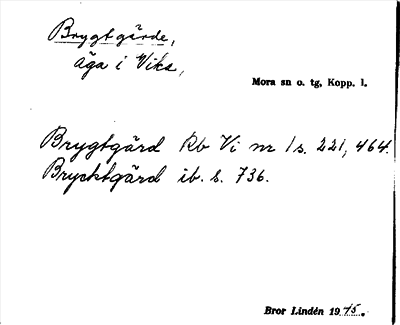 Brygtgärde,
äga i Vika,
Mora sn o. tg, Kopp. l.
Brygtgärd Rb Vi nr 1 s. 221, 464.
Brycktgärd ib. s. 736.
Bror Lindén 1945.